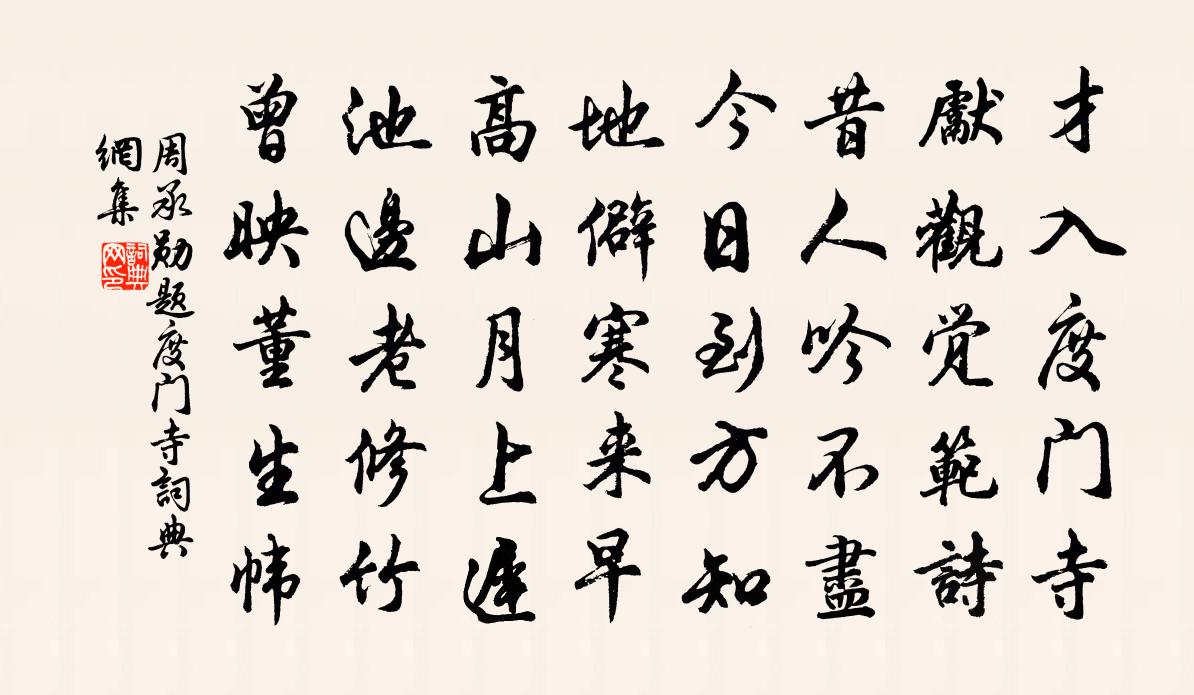 才入度门寺
獻觀觉範詩
昔人吟不盡
今日到方知
地僻寒来早
高山月上遲
池邊老修竹
曾映董生帏
周承勋题度门寺詞典
網集
詞典
网印